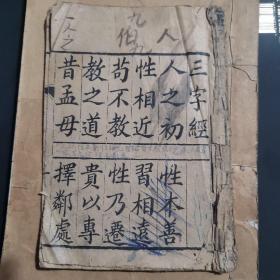 三字經
人之初 性本善
性相近 習相遠
苟不教 性乃遷
教之道 貴以專
昔孟母 擇鄰處
人
九
伯